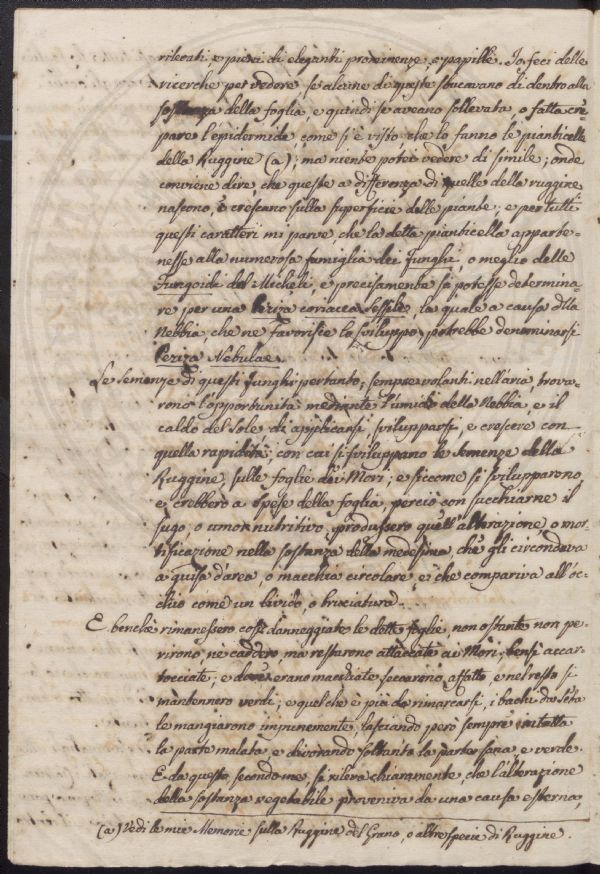 rilevati, e pieni di eleganti prominenze, e papille. Io feci delle
ricerche per vedere, se alcune di queste sbucavano di dentro alla
sostanza della foglia, e quindi se aveano sollevata, o fatta cre=
pare l'epidermide, come si è visto, che lo fanno le pianticelle
della Ruggine (a); ma niente potei vedere di simile; onde
conviene dire, che queste a differenza di quelle della ruggine
nascono, e crescano sulla superficie delle piante; e per tutti
questi caratteri mi parve, che la detta pianticella apparte=
nesse alla numerosa famiglia dei Funghi, o meglio delle
Fungoidi del Micheli, e precisamente si potesse determina=
re per una Peziza coriacea sessile, la quale a causa dlla
Nebbia, che ne favorisce lo sviluppo, potrebbe denominarsi
Peziza Nebulae.
Le Semenze di questi funghi pertanto, sempre volanti nell'aria, trova=
rono l'opportunità mediante l'umido della Nebbia, e il
caldo del Sole, di applicarsi, svilupparsi, e crescere con
quella rapidità, con cui si sviluppano le semenze della
Ruggine, sulle foglie dei Mori; e siccome si svilupparono,
e crebbero a spese della foglia, perciò con succhiarne il
sugo, o umor nutritivo, produssero quell'alterazione, o mor
tificazione nella sostanza della medesima, che gli circondava
a guisa d'area, o macchia circolare, e che compariva all'oc=
chio come un livido, o bruciatura.
E benchè rimanessero così danneggiate le dette foglie, non ostante non pe=
rirono, ne caddero, ma restarono attaccate ai Mori, bensì accar=
tocciate; e dov'erano macchiate seccarono affatto, e nel resto si
mantennero verdi; e quel che è più da rimarcarsi, i bachi da Seta
le mangiarono impunemente, lasciando però sempre intatta
la parte malata, e divorando soltanto la parte sana, e verde.
E da questo secondo me si rileva chiaramente che l'alterazione
della sostanza vegetabile proveniva da una causa esterna,
(a) Vedi le mie Memorie sulla Ruggine del Grano, o altre specie di Ruggine.